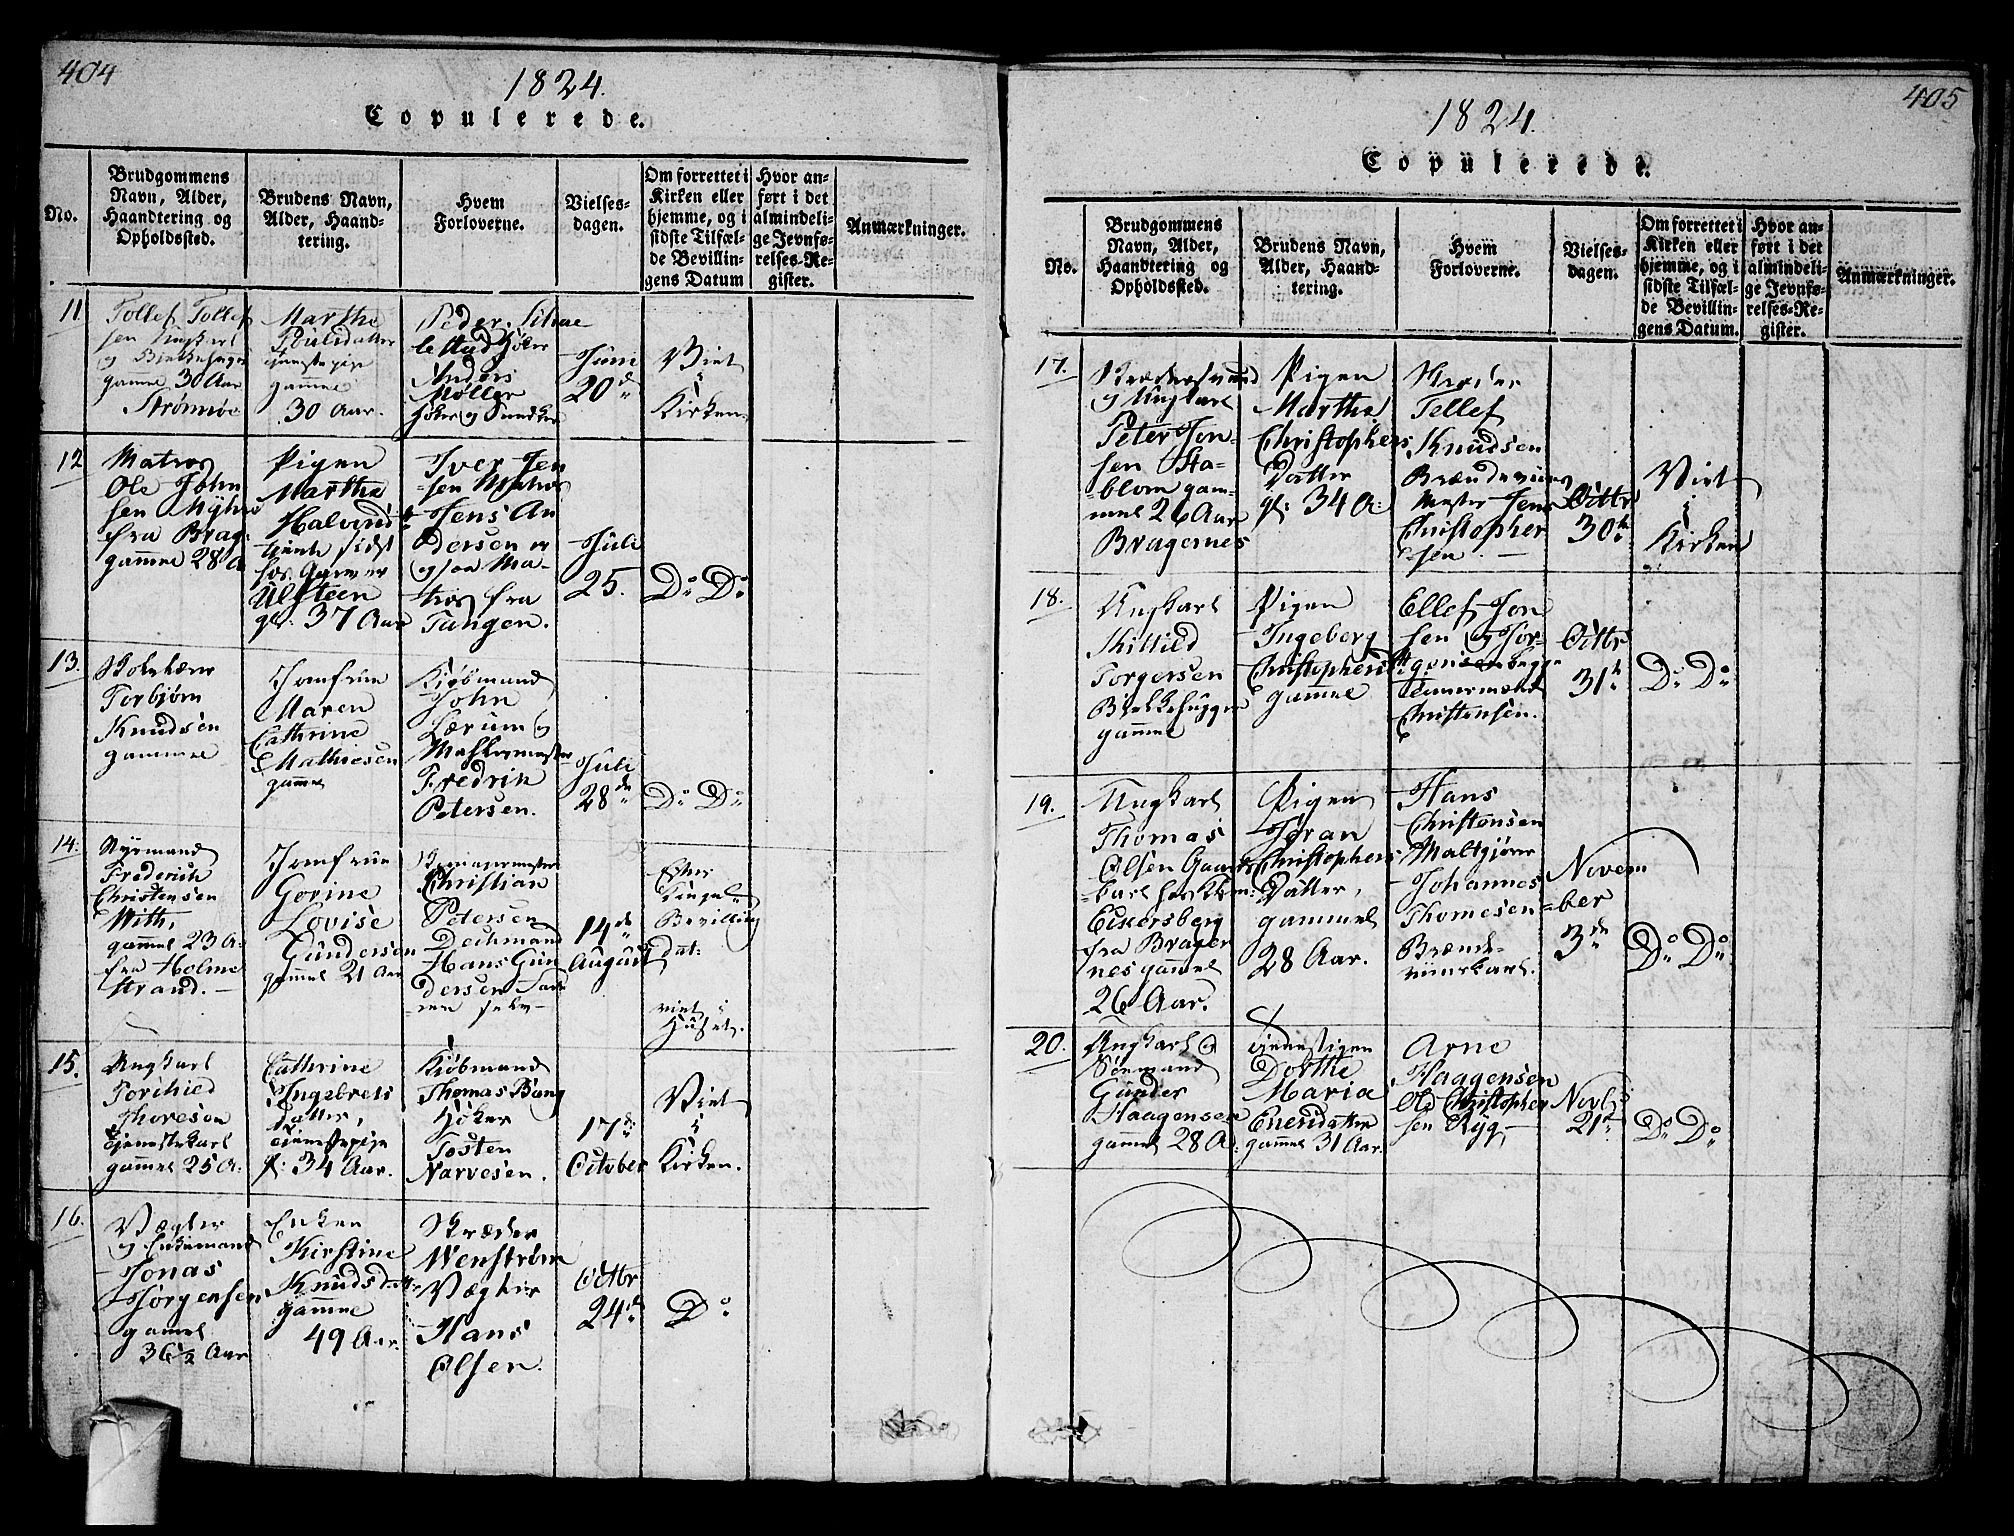 404
1824.
Copulerede.
No.
Brudgommens Navn, Alder, Haandtering og Opholdssted.
Brudens Navn, Alder, Haandtering.
Hvem Forloverne.
Vielsesdagen.
Om forrettet i Kirken eller hjemme, og i sidste Tilfælde Bevillingens Datum
Hvor anført i det almindelige Jevnførelses-Register.
Anmærkninger.
11
Tollef Tollef
sen Ungkarl
og
gamme 30 Aar
Strømsöe
Marthe
Povlsdatter
tjenstepige
gamme
30 Aar.
Peder
Anders
Møller
Juni
20 d
Viet
i
Kirken
12
Matros
Ole John
sen Myhre
fra Brag:
gamme 28 A
Pigen
Martha
Halvordt
tjente sidst
hos
Ulsteen
gl: 37 Aar
Iver Jen
sen Matros
Jens An
dersen
Ma-
tros fra
Tangen.
Juli
25.
Do Do
13.
Torbjørn
Knudsen
gamme
Jomfrue
Maren
Cathrine
Mathiesen
gamme
Kiöbmand
John
Lærum og
Fredrik
Petersen.
Juli
28 de
Do Do
14.
Styrmand
Frederich
Christensen
With,
gammel 23 A.
fra Holme
strand.
Jomfrue
Gorine
Lovise
Gundersen
gammel 21 Aar
Christian
Petersen
Dechmand
Hans Gun
dersen
14 de
August
Efter
Bevilling
dat:
viet i
Huset.
15.
Ungkarl
Torchild
Thoresen
tjenestekarl
gammel 25 A:
Cathrine
Ingebrets
datter,
tjenestepige
gl: 34 Aar.
Kiöbmand
Thomas Bang
Höker
Tosten
Narvesen.
17 de
October
Viet
i
Kirken.
16.
Vægter
og Enkemand
Jonas
Jörgensen
gamel
36 1/2 Aar
Enken
Kirstine
Knudsdatter
gamme
49 Aar.
Skræder
Wenström
Vægter
Hans
Olsen.
Octbr
24 de
Do
405
1824.
Copulerede.
No.
Brudgommens Navn, Alder, Haandtering og Opholdssted.
Brudens Navn, Alder, Haandtering.
Hvem Forloverne.
Vielsesdagen.
Om forrettet i Kirken eller hjemme, og i sidste Tilfælde Bevillingens Datum.
Hvor anført i det almindelige Jevnførelses-Register.
Anmærkninger.
17.
Skrædersvend
og Ungkarl
Peter Jon-
sen Sta-
blom gam-
mel 26 Aar
Bragernes
Pigen
Martha
Christophers
Datter
gl: 34 A:
Skræder
Tellef
Knudsen
Brændeviins
Mester Jens
Christopher
sen.
Octbr
30 te
Viet
i
Kirken
18.
Ungkarl
Kittild
Torgersen
Bielkehugger
gamme
Pigen
Ingeborg
Christophersdtr
gamme
Ellef Jon
sen og Jör-
gensen begge
Tømermænd
Christensen.
Octbr
31 te
Do Do
19.
Ungkarl
Thomas
Olsen Gaards
karl hos Kbm:
Eckersberg
fra Brager
nes gammel
26 Aar.
Pigen
Jöran
Christophers
Datter,
gammel
28 Aar.
Hans
Christensen
Maltgjörer
Johannes
Thomesen
Brænde-
viinskarl.
Novem
ber
3 de
Do Do
20.
Ungkarl og
Söemand
Gunder
Haagensen
gammel 28 A:
Dorthe
Maria
Enersdatter
gammel 31 Aar.
Arne
Haagensen
Ole Christopher
sen Ryg
Novbr
21 de
Do Do